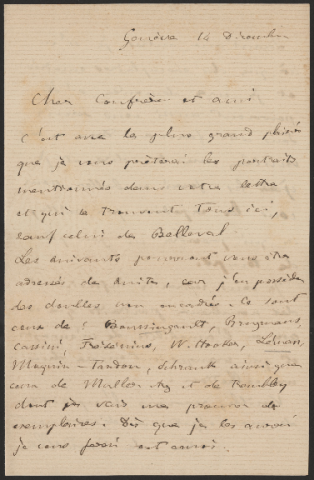 Genève 14 Décembre
Cher Confrère et ami
C'est avec le plus grand plaisir
que je vous prêterai les portraits
mentionnés dans votre lettre
et qui se trouvent tous ici,
sauf celui de Belleval
Les suivants pourront vous être
adressés de suite, car j'en possède
des doubles non encadrés. Ce sont
ceux de: Boussingault, Brugmans,
Cassini, Fresenius, W. Hooker,
Moquin-Tandon, Schrank ainsi que
ceux de Muller Arg et de Trembley
dont je vais me procurer des
exemplaires. Dès que je les aurai
je vous ferai